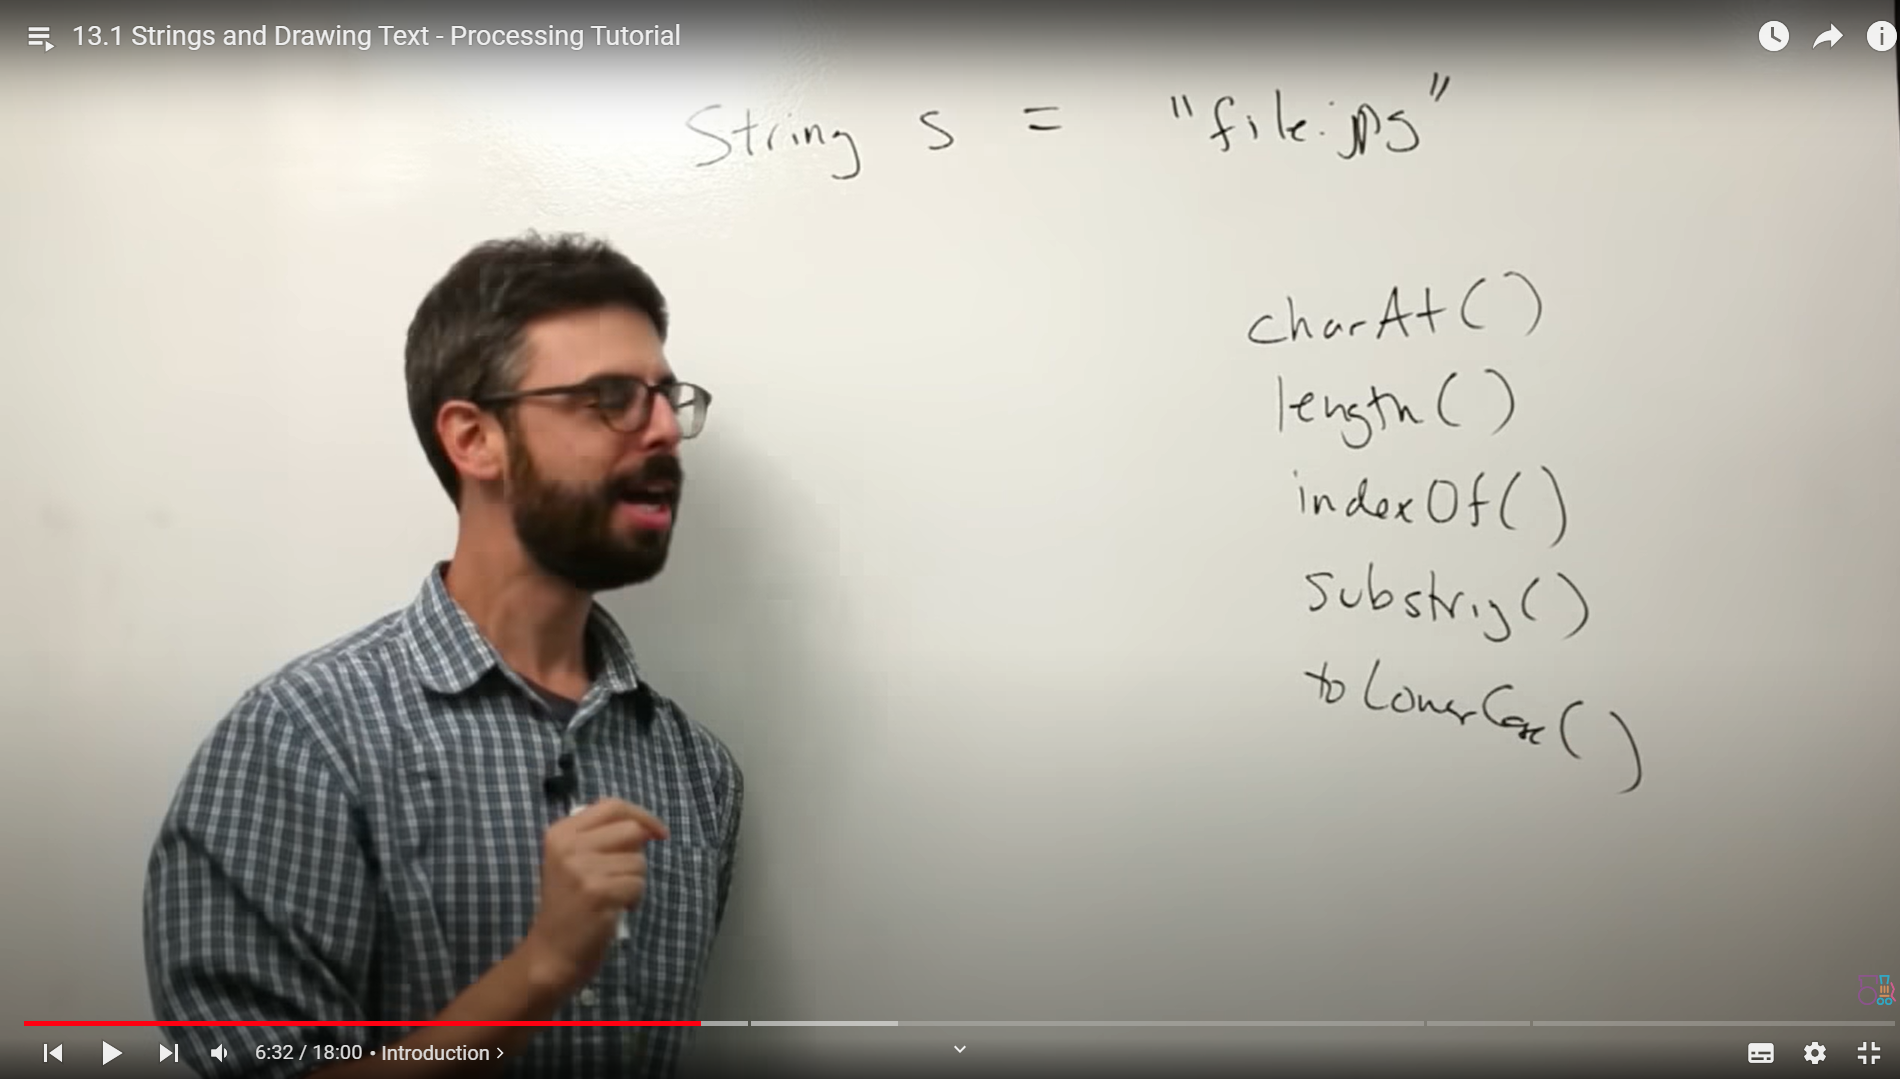 13.1 Strings and Drawing Text - Processing Tutorial
String s = "file.jpg"
charAt()
length()
indexOf()
substrig()
toLowerCase()
6:32 / 18:00 • Introduction